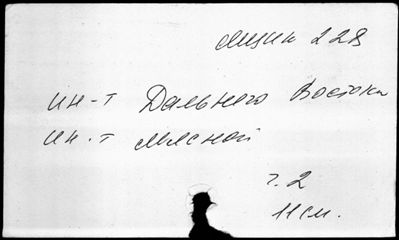 Лицин 228
ин-т Дальнего Востока
ин-т Мясной
г. 2
11 см.